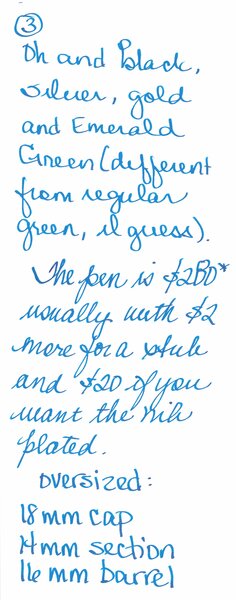 3
Oh and Black,
silver, gold
and Emerald
Green (different
from regular
green, I guess).
The pen is $2BD*
usually with $2
more for a stub
and $20 if you
want the nib
plated.
oversized:
18 mm cap
14 mm section
16 mm barrel